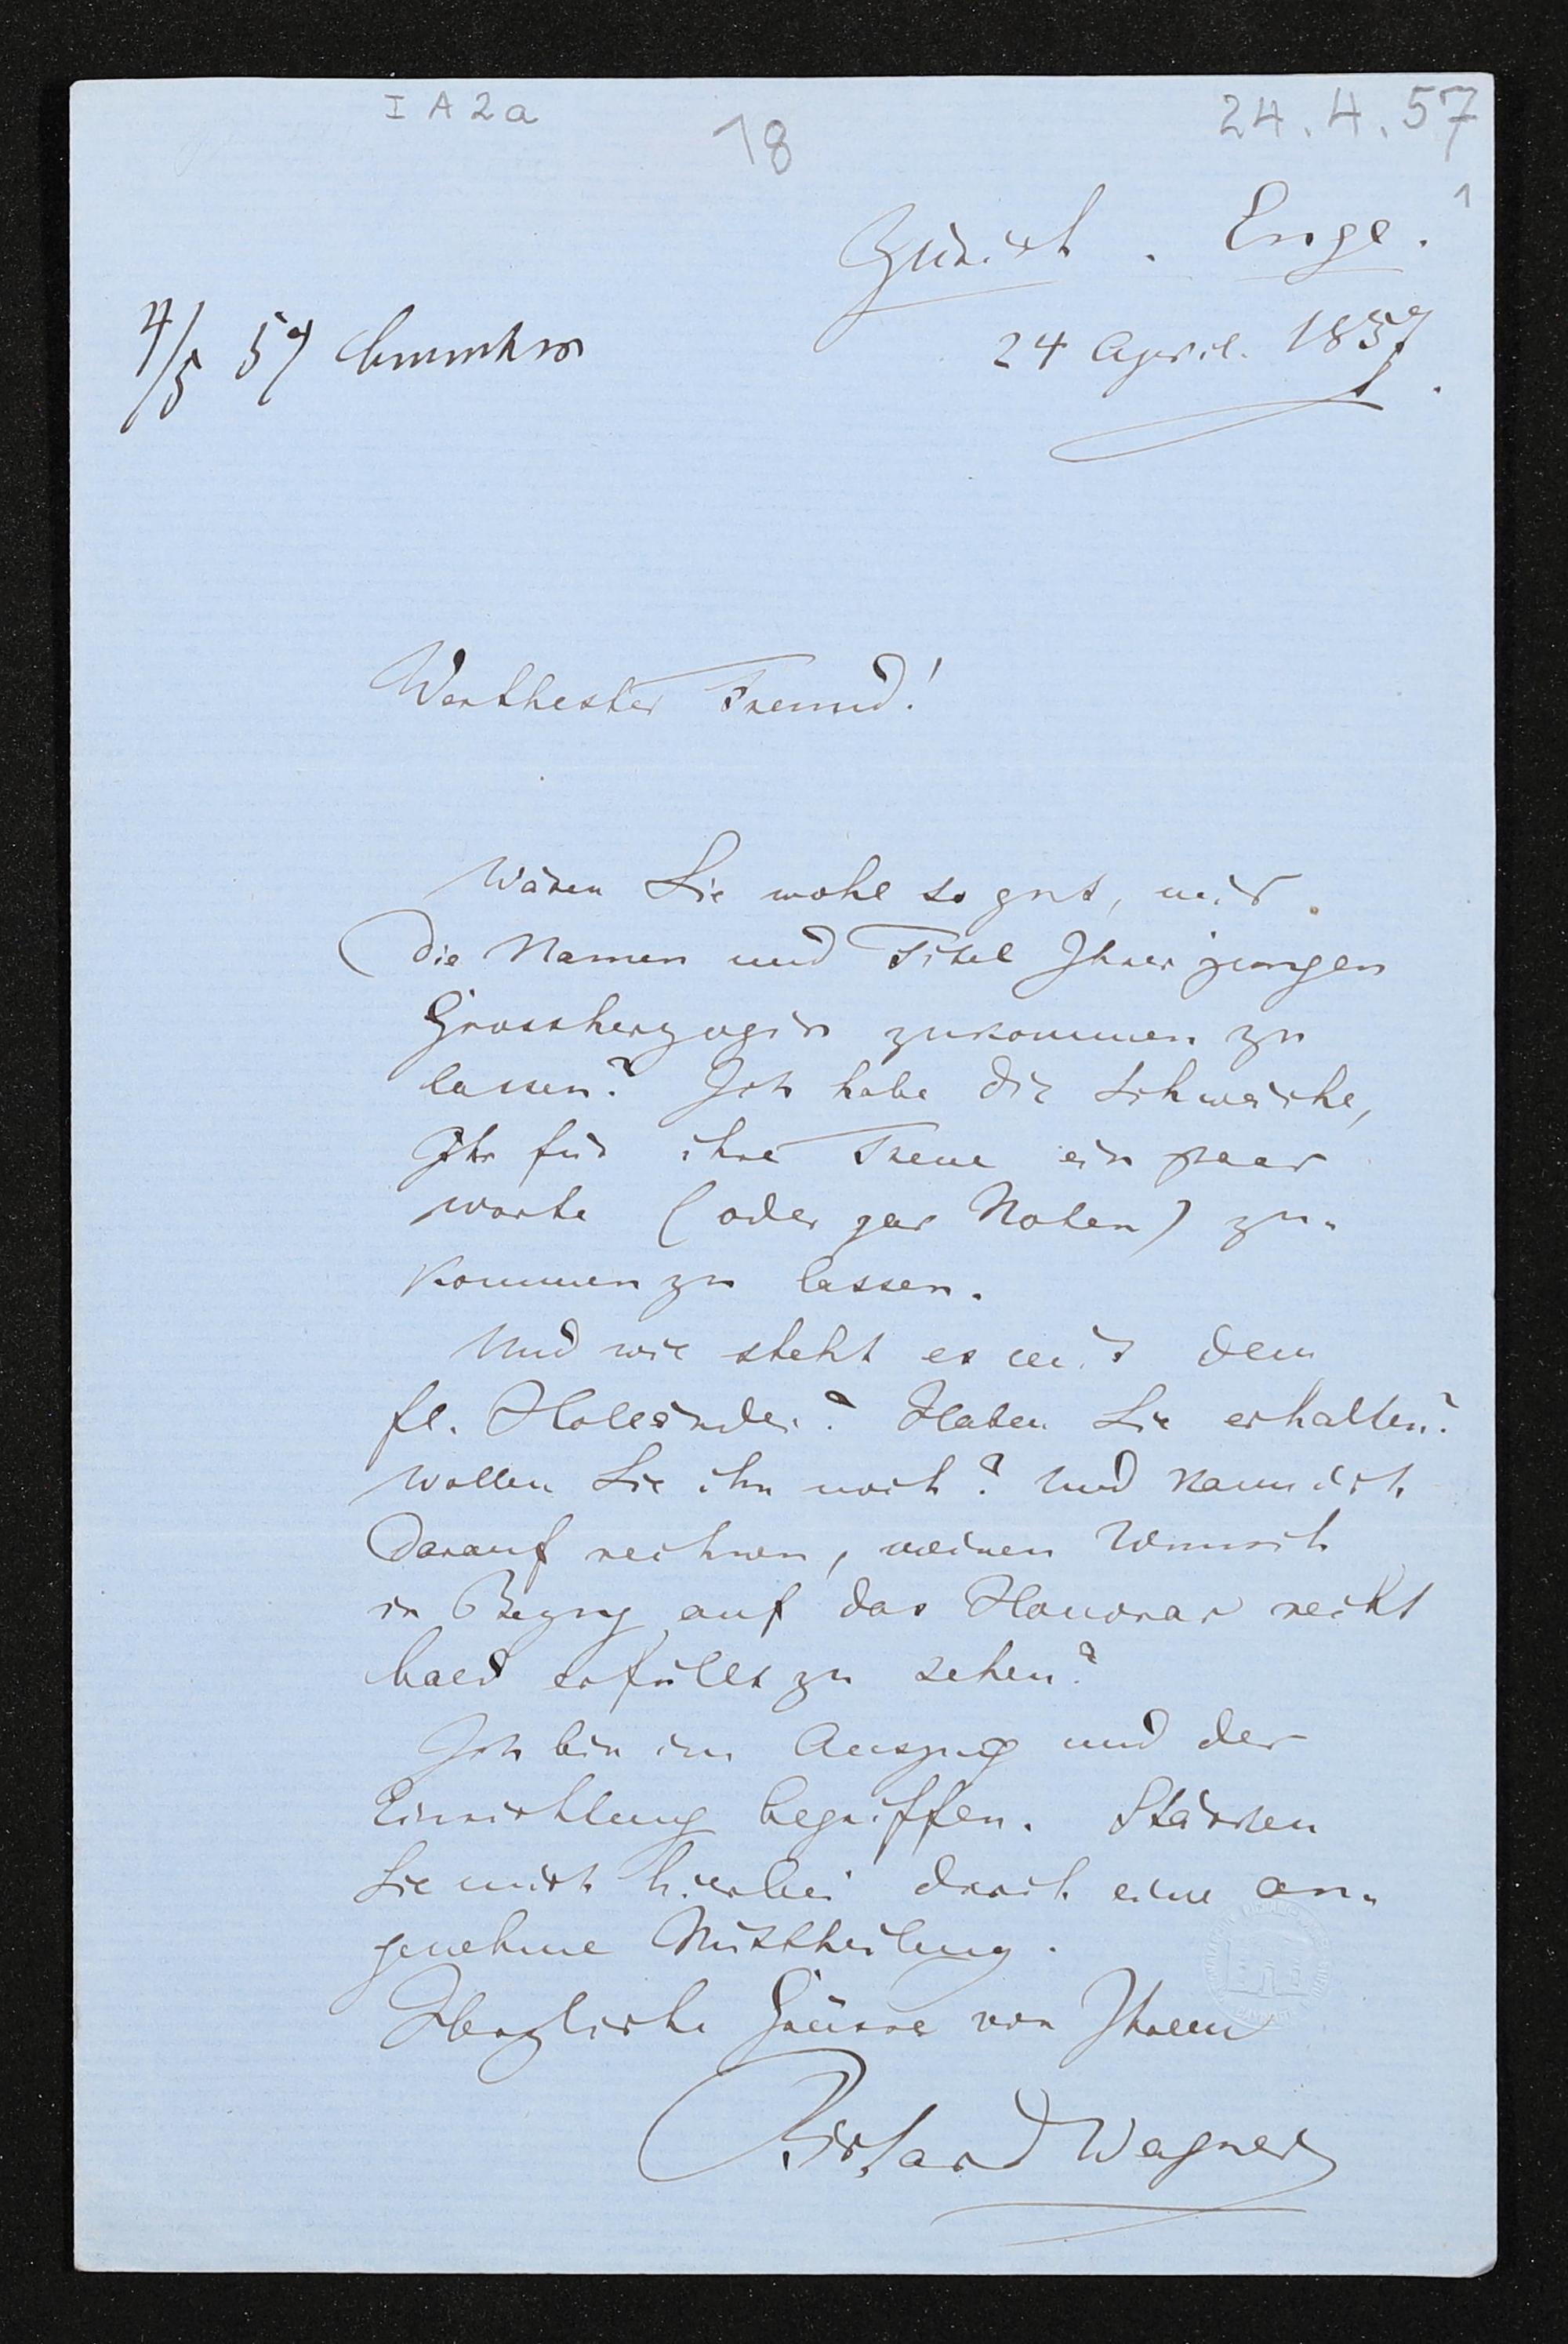 I A 2 a
18
24.4.57
1
Zürich. Enge.
24 April. 1857.
4/5 57
Werthester Freund!
Wären Sie wohl so gut, mir
die Namen und Titel Ihrer jungen
Grossherzogin zukommen zu
lassen? Ich habe die Schwäche,
Ihr für ihre Treue ein paar
Worte (oder gar Noten) zu-
kommen zu lassen.
Und wie steht es mit dem
fl. Holländer? Haben Sie erhalten?
Wollen Sie ihn noch? Und kann ich
darauf rechnen, meinen Wunsch
in Bezug auf das Honorar recht
bald erfüllt zu sehen?
Ich bin im Auszug und der
Einrichtung begriffen. Stärken
Sie mich hierbei durch eine an-
genehme Mittheilung.
Herzliche Grüsse von Ihrem
Richard Wagner